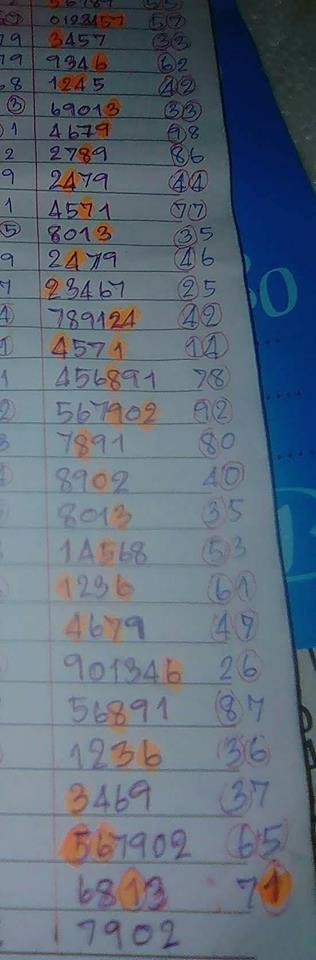 0123457 57
79 3457 33
79 9346 62
68 1245 42
3 69013 33
1 4679 98
2 2789 86
9 2479 44
1 4571 77
5 8013 35
9 2479 46
23467 25
4 789124 42
1 4571 14
1 456891 78
2 567902 92
3 7891 80
8902 40
8013 35
14568 53
1236 61
4679 49
901346 26
56891 87
1236 36
3469 37
567902 65
6813 71
7902